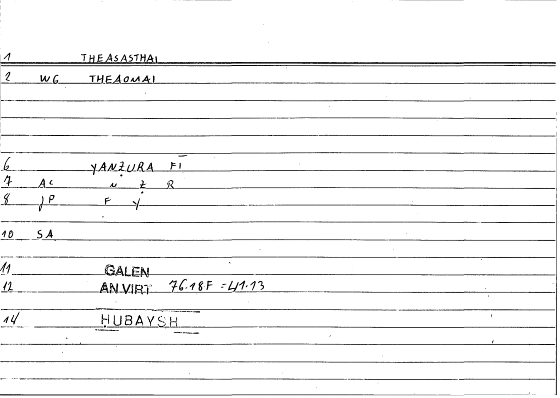 1 THEASASTHAI
2 WG THEAOMAI
6 YANẒURA FĪ
7 AC N Ẓ R
8 JP F Y
10 SA
11 GALEN
12 AN.VIRT 76.18F =41.13
14 HUBAYSH